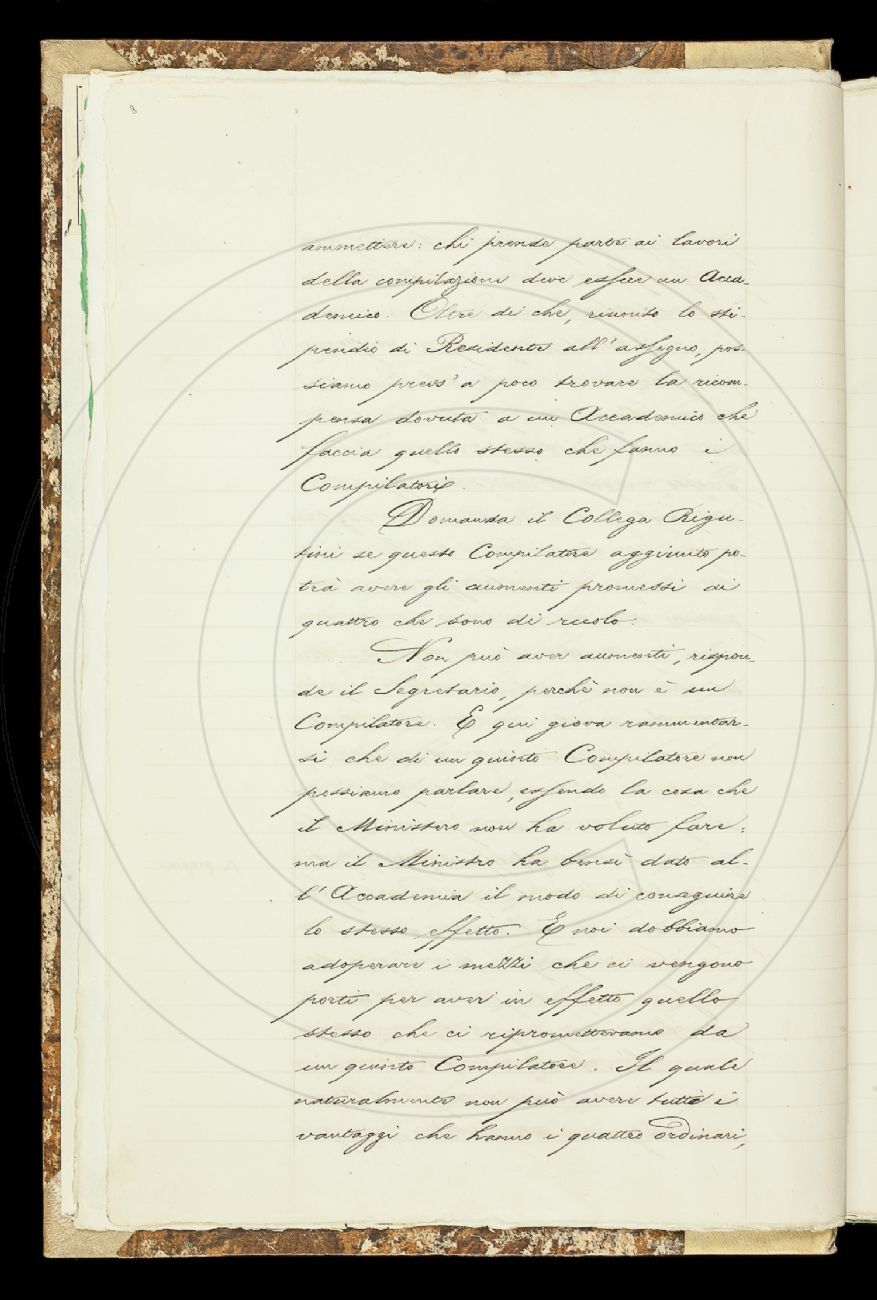 3
ammettere: chi prende parte ai lavori
della compilazione deve essere un Acca-
demico. Oltre di che, riunito lo sti-
pendio di Residente all'assegno, pos-
siamo press' a poco trovare la ricom-
pensa dovuta a un Accademico che
faccia quello stesso che fanno i
Compilatori.
Domanda il Collega Rigu-
tini se questo Compilatore aggiunto po-
trà avere gli aumenti promessi ai
quattro che sono di ruolo.
Non può aver aumenti, rispon-
de il Segretario, perchè non è un
Compilatore. E qui giova rammentar-
si che di un quinto Compilatore non
possiamo parlare, essendo la cosa che
il Ministero non ha voluto fare;
ma il Ministro ha bensì dato al-
l'Accademia il modo di conseguire
lo stesso effetto. E noi dobbiamo
adoperare i mezzi che ci vengono
porti per aver in effetto quello
stesso che ci ripromettevamo da
un quinto Compilatore. Il quale
naturalmente non può avere tutti i
vantaggi che hanno i quattro ordinari,